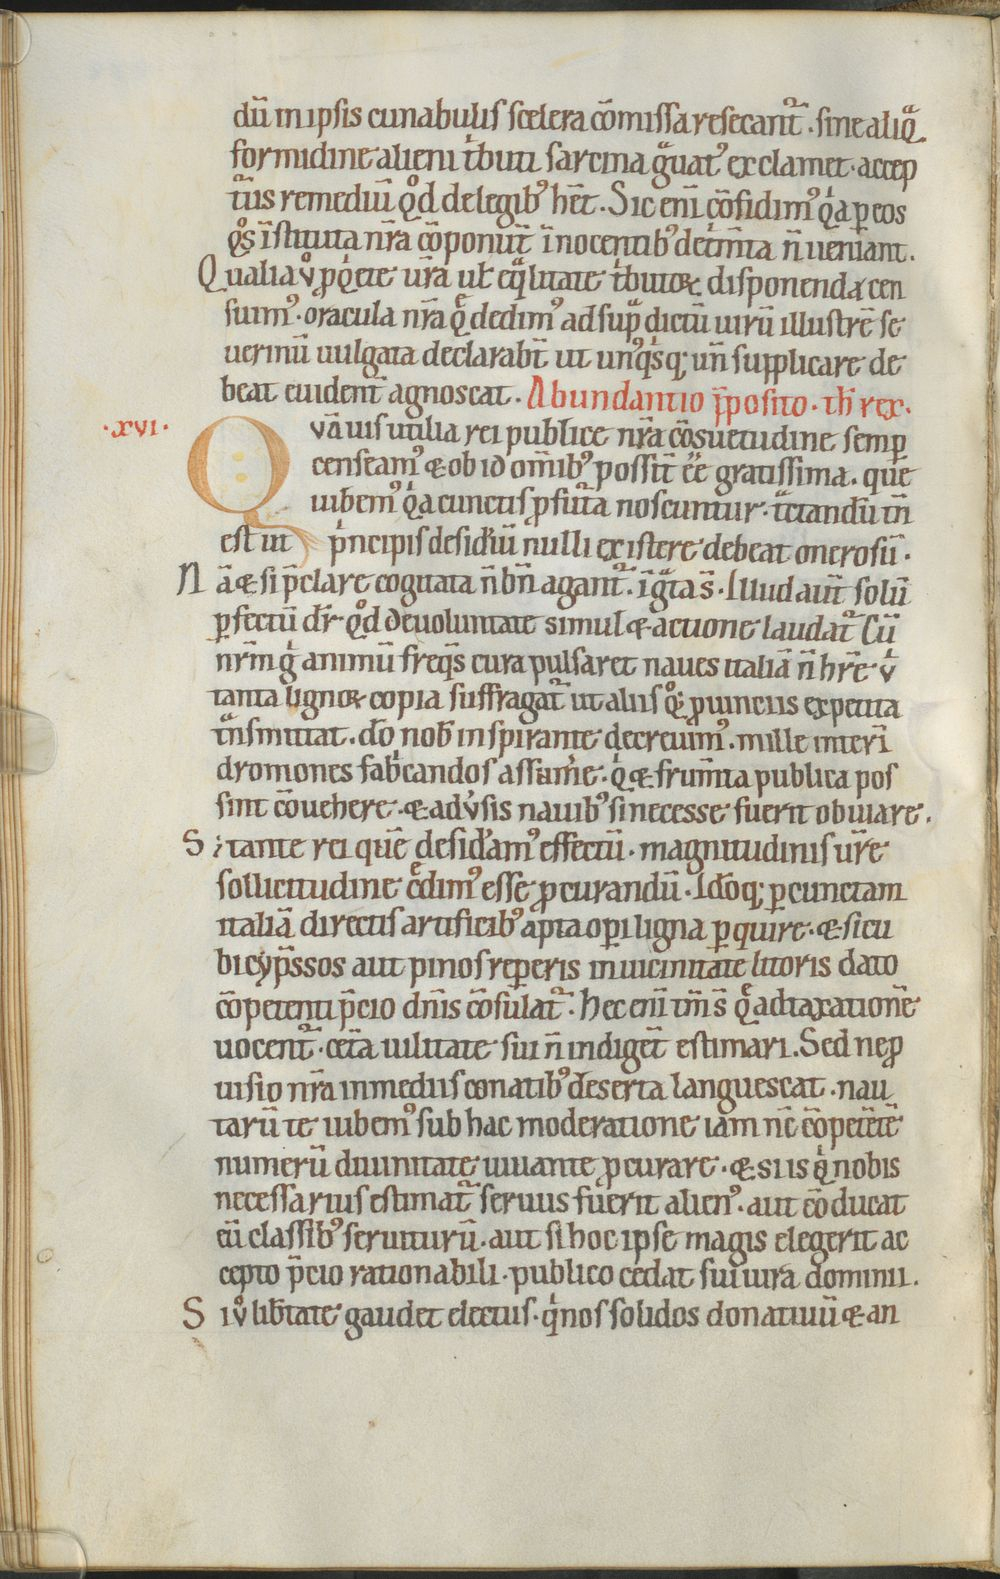 dū in ipsis cunabulis scelera cōmissa resecant᷑. sine aliqͣ
formidine alieni tͥbuti sarcina gͣuatꝰ exclamet. accep
tᷓus remediū qͦd de legibꝰ hēt. Sic enī cōfidimꝰ qͥa ꝑ eos
qͦs īstituta nr̄a cōponut̄ īnocentibꝰ detͥm̄ta n̄ ueniant.
Qualia uͦ ꝓqͥete ur̄a ul̄ eqͣlitate tͥbutoꝝ disponenda cen
suimꝰ. oracula nr̄a qͤ dedimꝰ ad supͣdictū uirū illustrē se
uerinū uulgata declarabt̄ ut unꝰqͥsqꝫ un̄ supplicare de
beat euident̄ agnoscat. Abundantio p̄posito. th̄ rex.
.xvi. Qvāuis utilia rei publice nr̄a cōsuetudine semꝑ
censeamꝰ & ob id om̄ibꝰ possīt eē gratissima. que
iubemꝰ qͥa cunctis ꝓfutᷓa noscuntur. tͣctandū tn̄
est ut pͥncipis desid̄iū nulli existere debeat onerosū.
Nā & si p̄clare cogitata n̄ bn̄ agant᷑. īgͣta s̄. Illud aut̄ solū
ꝑfectū dr̄. qͦd de uoluntate simul & actione laudat᷑ Cū
nr̄m gͥ animū freqͥs cura pulsaret naues italiā n̄ hr̄e uͥ
tanta lignoꝝ copia suffragat᷑ ut aliis qͦqꝫ ꝓuinciis expetita
tͣnsmittat. dō nob̄ inspirante decreuimꝰ. mille interī
dromones fabͥcandos assum̄e. qͥ & frum̄ta publica pos
sint cōuehere. & adu͛sis nauibꝰ si necesse fuerit obuiare.
Si tante rei quē desid̄amꝰ effectū. magnitudinis ur̄e
sollicitudine cͤdimꝰ esse ꝓcurandū. Id̄oqꝫ ꝑ cunctam
italiā directis artificibꝰ apta oꝑi ligna ꝑquire. & sicu
bi cyp̄ssos aut pinos reꝑeris in uicinitate litoris dato
cōpetenti p̄cio dn̄is cōsulat᷑. Hec enī tm̄ s̄ qͤ ad taxationē
uocent᷑. cet̄a uilitate sui n̄ indigēt estimari. Sed ne ꝓ
uisio nr̄a in mediis conatibꝰ deserta languescat. nau
tarū te iubemꝰ sub hac moderatione iam nc̄ cōpetētē
numerū diuinitate iuuante ꝓcurare. & si is qͥ nobis
necessarius estimat᷑ seruus fuerit alienꝰ. aut cōducat
eū classibꝰ seruiturū. aut si hoc ipse magis elegerit ac
cepto p̄cio rationabili. publico cedat sui iura dominii.
Si uͦ lib̄tate gaudet electus. qͥnos solidos donatiuū & an